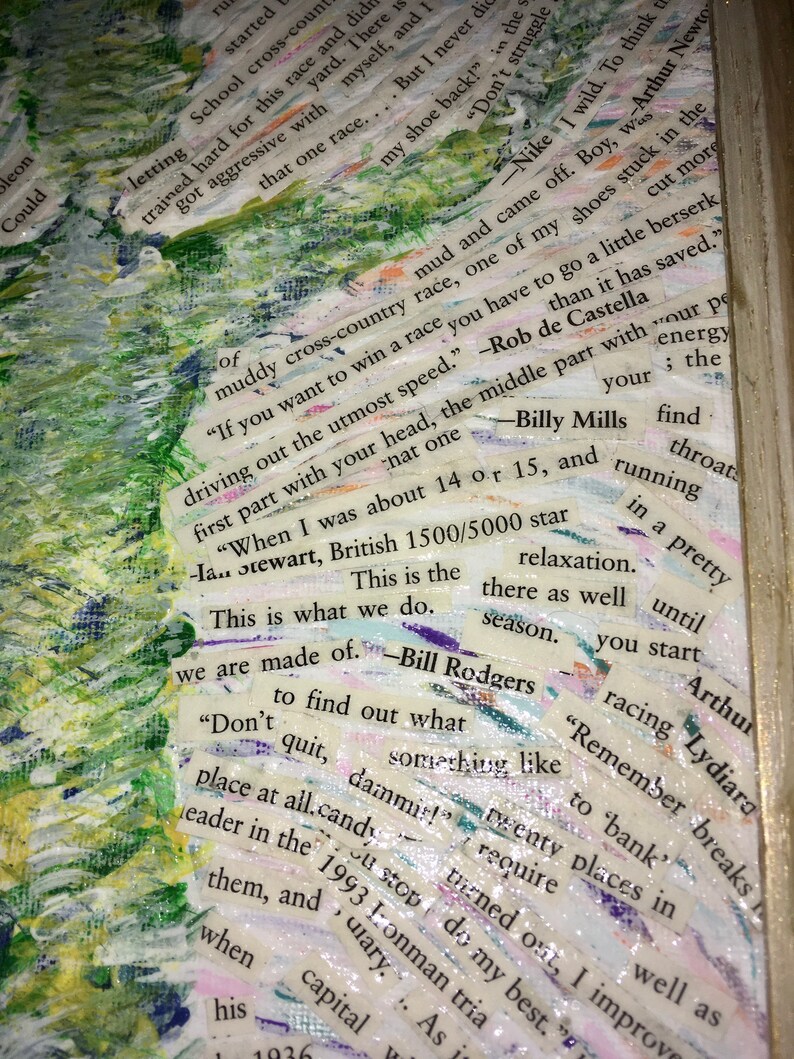 started
School cross-count
letting
trained hard for this race and didn
yard. There is
got aggressive with
myself, and I
that one race.... But I never did
my shoe back!"
in the s
"Don't struggle
—Nike
I wild. To think th
—Arthur Newto
mud and came off. Boy, was
of
muddy cross-country race, one of my shoes stuck in the
cut more
"If you want to win a race you have to go a little berserk
than it has saved."
driving out the utmost speed."
—Rob de Castella
first part with your head, the middle part with your pe
energy
; the
your
—Billy Mills
find
hat one
throats
"When I was about 14 or 15, and
running
—Ian Stewart, British 1500/5000 star
in a pretty
relaxation.
This is the
there as well
This is what we do.
until
season.
you start
we are made of.
—Bill Rodgers
Arthur
Lydiard
racing
to find out what
"Don't
quit,
dammit!"
something like
"Remember
to 'bank'
breaks
place at all.
candy
twenty places in
leader in the
require
1993 Ironman tria
you stop
turned out, I improv
them, and
do my best."
well as
when
capital
As
his
1936
oleon
Could